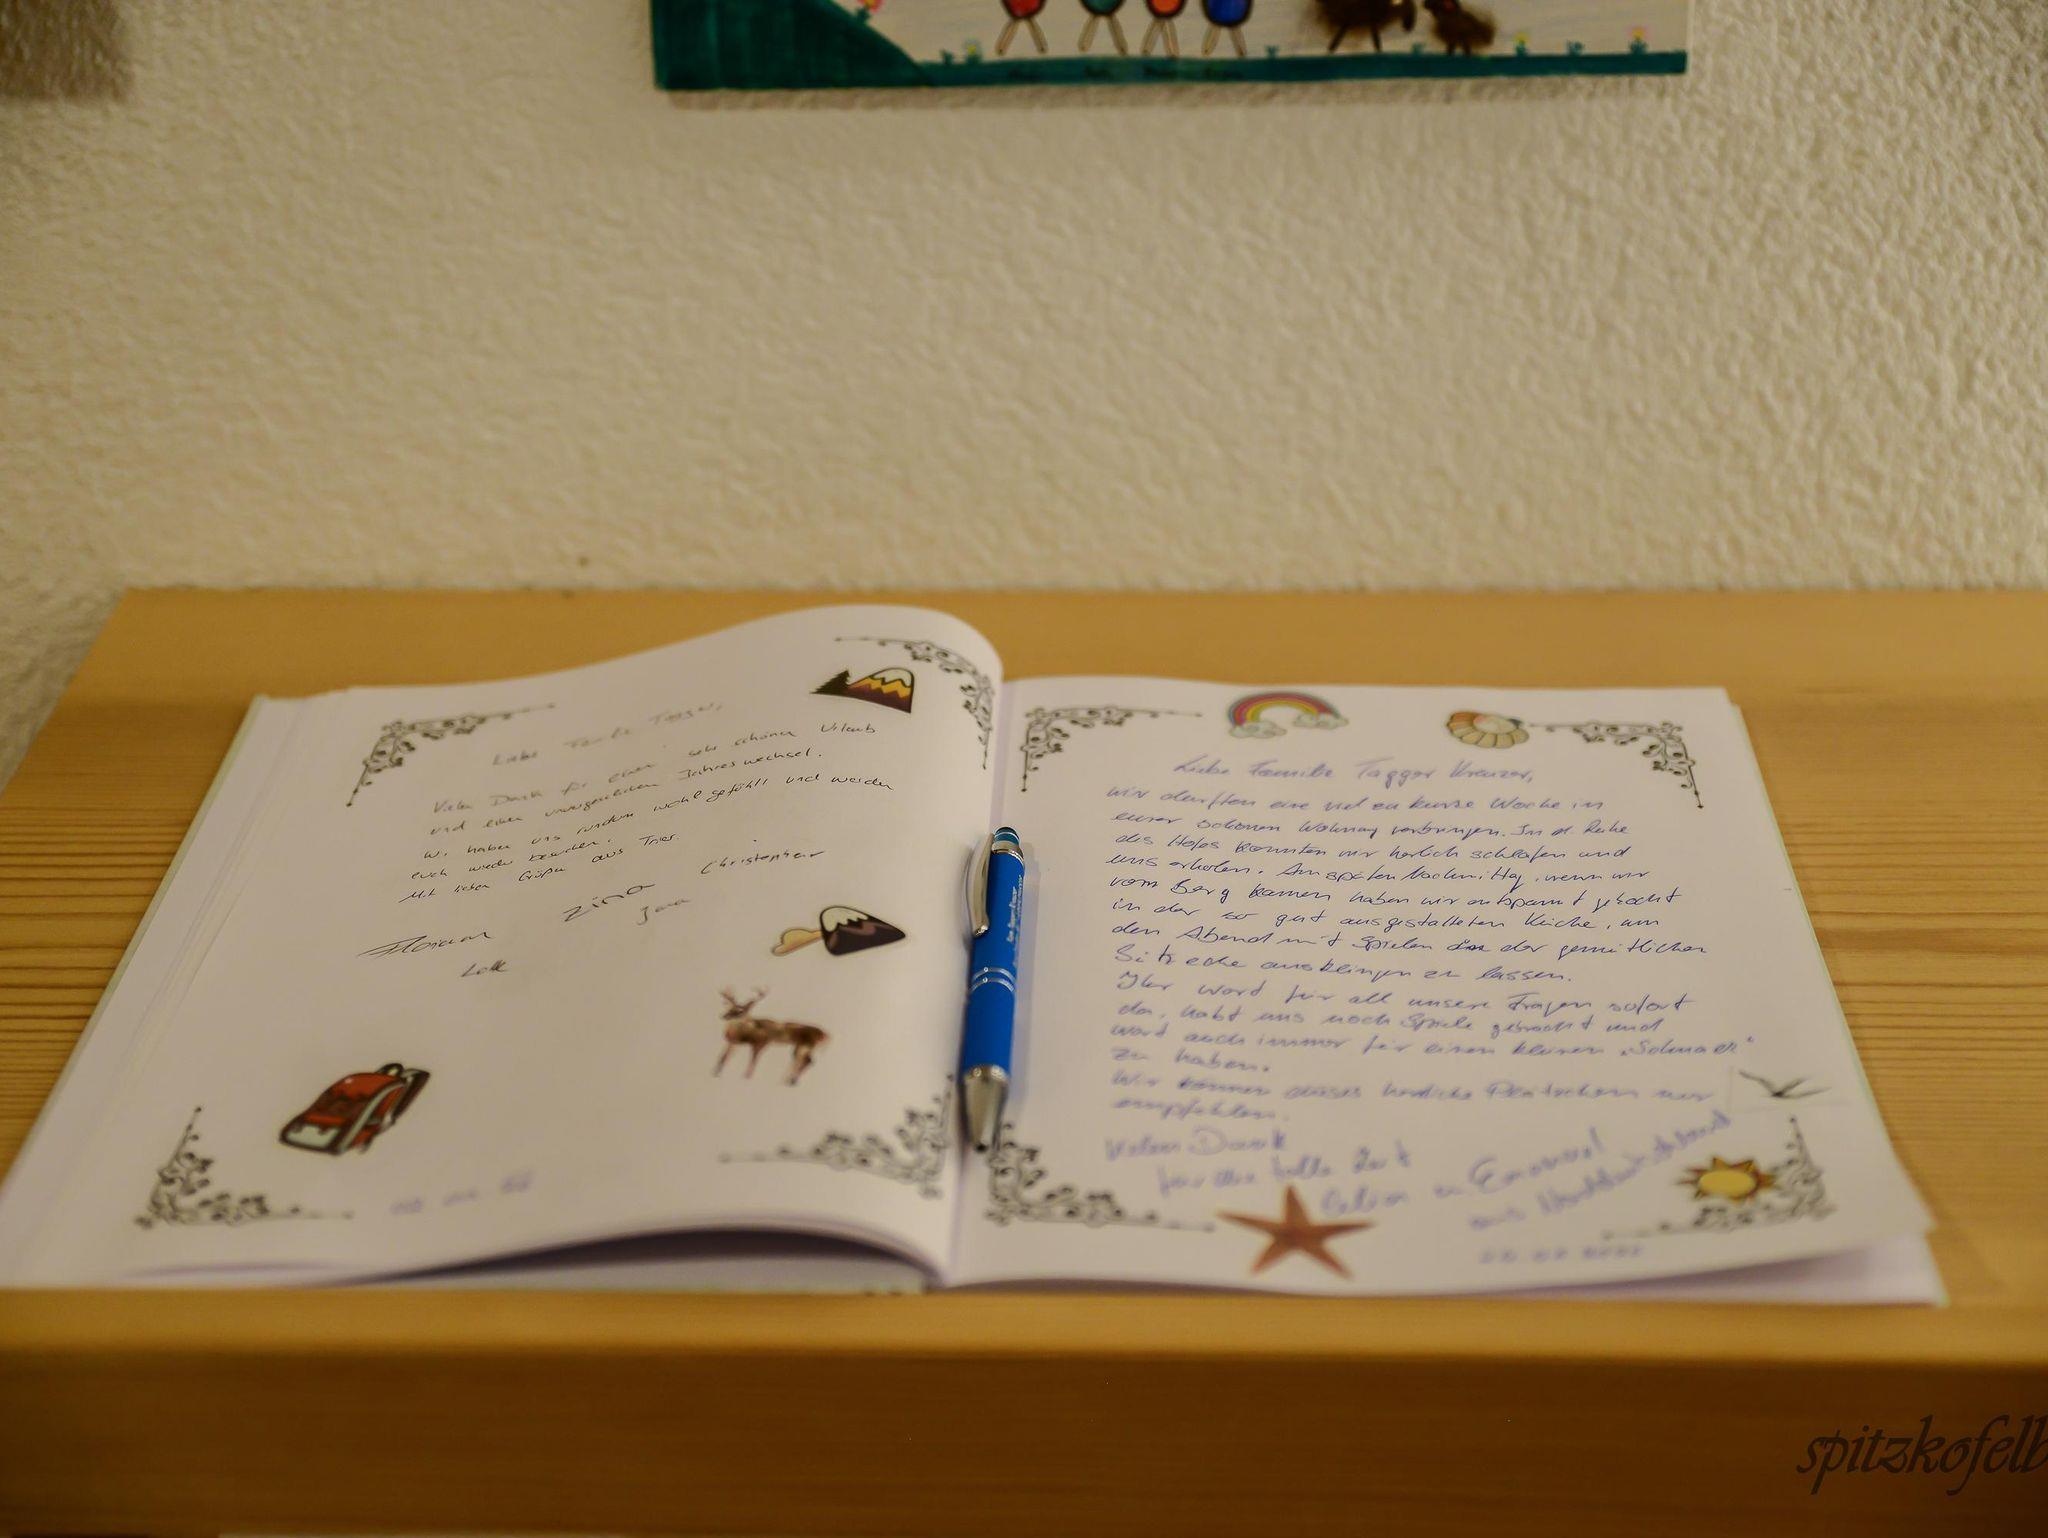 Liebe Familie Tagger,
Vielen Dank für einen sehr schönen Urlaub
und einen unvergesslichen Jahreswechsel.
Wir haben uns rundum wohl gefühlt und werden
euch wieder besuchen.
Mit lieben Grüßen aus Trier.
Christopher
Zina
Jana
Florian
Lotte
Liebe Familie Tagger Kreuzer,
wir durften eine viel zu kurze Woche in
eurer schönen Wohnung verbringen. In d. Ruhe
des Hofes konnten wir herlich schlafen und
uns erholen. Am späten Nachmittag, wenn wir
vom Berg kamen haben wir entspannt gekocht
in der so gut ausgestatteten Küche, um
den Abend mit Spielen in der gemütlichen
Sitzecke ausklingen zu lassen.
Ihr ward für all unsere Fragen sofort
da, habt uns noch Spiele gebracht und
ward auch immer für einen kleinen „Schnack"
zu haben.
Wir können dieses herrliche Plätzchen nur
empfehlen.
Vielen Dank
für die tolle Zeit
Emanuel
aus Norddeutschland
spitzkofelb